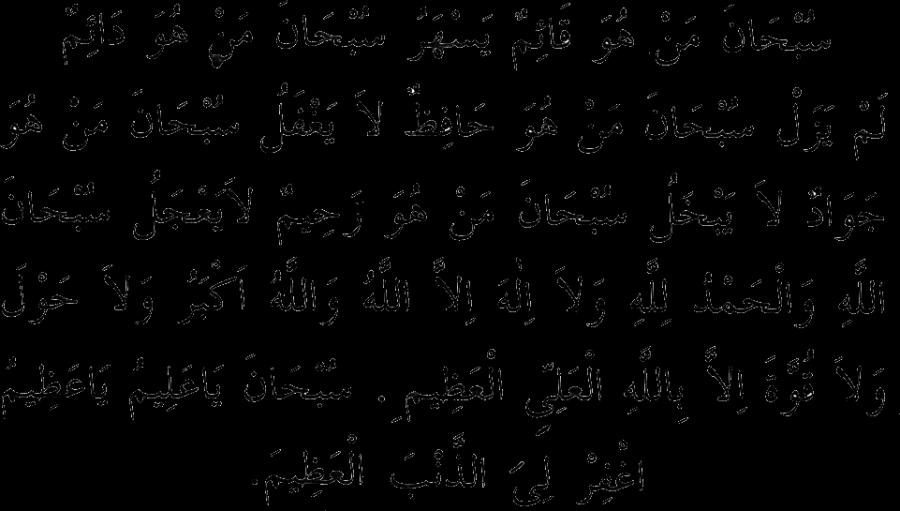 سُبْحَانَ مَنْ هُوَ قَائِمٌ يَسْهَرُ سُبْحَانَ مَنْ هُوَ دَائِمٌ
لَمْ يَزَلْ سُبْحَانَ مَنْ هُوَ حَافِظٌ لاَ يَغْفَلُ سُبْحَانَ مَنْ هُوَ
جَوَادٌ لاَ يَبْخَلُ سُبْحَانَ مَنْ هُوَ رَحِيمٌ لاَيَعْجَلُ سُبْحَانَ
اللَّهِ وَالْحَمْدُ لِلَّهِ وَلاَ اِلٰهَ اِلاَّ اللَّهُ وَاللَّهُ اَكْبَرُ وَلاَ حَوْلَ
وَلاَ قُوَّةَ اِلاَّ بِاللَّهِ الْعَلِىِّ الْعَظِيمِ . سُبْحَانَ يَاعَلِيمُ يَاعَظِيمُ
اغْفِرْ لِىَ الذَّنْبَ الْعَظِيمَ.